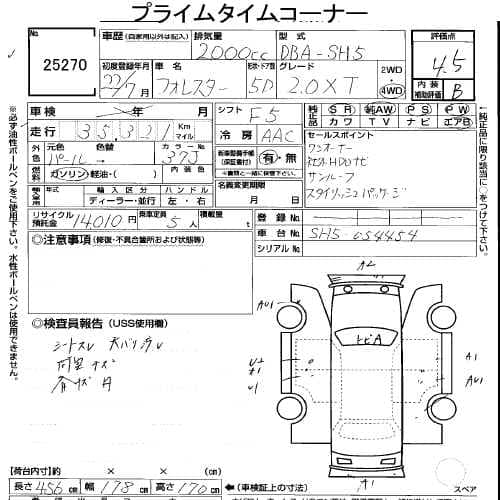 プライムタイムコーナー
25270
車歴 (自家用以外は記入)
排気量 2000cc
型式 DBA-SH5
評価点 4.5
内装補助評価 B
初度登録年月 22/7月
車名 フォレスター
形状・ドア数 5D
グレード 2.0XT
2WD
4WD
車検 年 月
シフト F5
純正品 SR 純AW PS PW
カワ TV ナビ エアB
走行 35,321 Km マイル
冷房 AAC
セールスポイント
ワンオーナー
社外HDDナビ
サンルーフ
スタイリッシュパッケージ
外色 元色 パール→ 色替 カラーNo 37J
燃料 ガソリン・軽油・( ) 内装色
新車整備手帳(保証書付) 有・無
※実物と一緒に提供下さい。
名義変更期限
月 日
輸入車 年式 輸入区分 ディーラー・並行 ハンドル 左・右
リサイクル預託金 14010円
乗車定員 5人
積載量 t
登録No.
車台No. SH5-054454
シリアルNo.
◎注意事項 (修復・不具合箇所および状態等)
◎検査員報告 (USS使用欄)
シートスレ
荷室キズ
A2
AU1
AU1
トビA
U2
A1
U1
A1
U1
A1
スペア
【荷台内寸】約 × ×
長さ 456 幅 178 高さ 170 cm
(車検証上の寸法)
※必ず油性ボールペンをご使用下さい。水性ボールペンは使用できません。